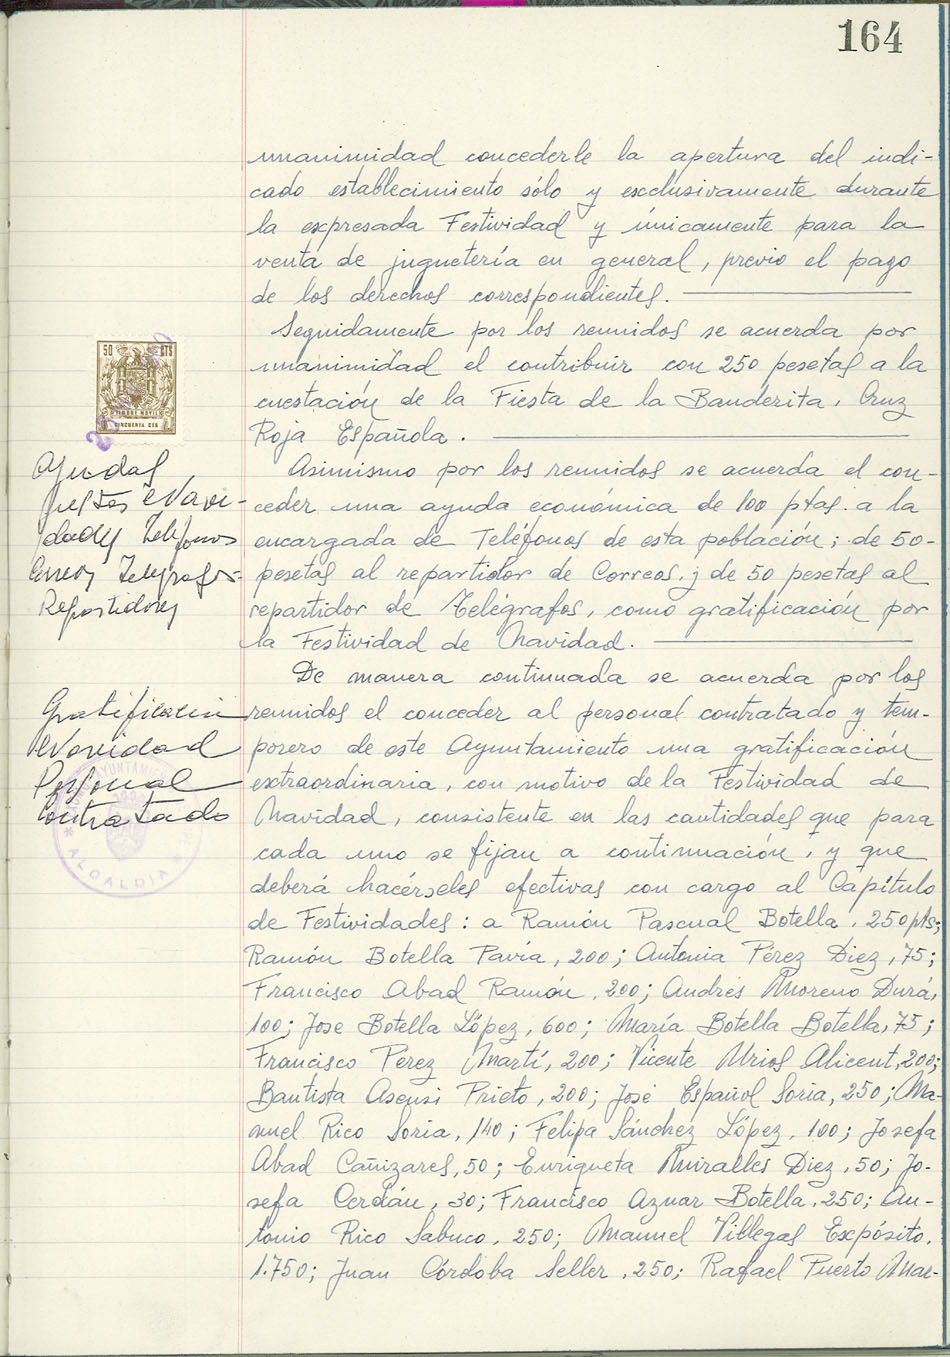 164
unanimidad concederle la apertura del indi-
cado establecimiento sólo y exclusivamente durante
la expresada Festividad y únicamente para la
venta de juguetería en general, previo el pago
de los derechos correspondientes.
Seguidamente por los reunidos se acuerda por
unanimidad el contribuir con 250 pesetas a la
cuestación de la Fiesta de la Banderita, Cruz
Roja Española.
50 CTS
TIMBRE MOVIL
CINCUENTA CTS
Ayudas
fiestas Navi-
dades Teléfonos
Correos Telégrafos-
Repartidores
Asimismo por los reunidos se acuerda el con-
ceder una ayuda económica de 100 ptas. a la
encargada de Teléfonos de esta población; de 50-
pesetas al repartidor de Correos, y de 50 pesetas al
repartidor de Telégrafos, como gratificación por
la Festividad de Navidad.
Gratificación
Navidad
Personal
Contratado
AYUNTAMIENTO
* ALCALDIA *
De manera continuada se acuerda por los
reunidos el conceder al personal contratado y tem-
porero de este Ayuntamiento una gratificación
extraordinaria, con motivo de la Festividad de
Navidad, consistente en las cantidades que para
cada uno se fijan a continuación, y que
deberá hacérseles efectivas con cargo al Capítulo
de Festividades: a Ramón Pascual Botella, 250 pts;
Ramón Botella Pavía, 200; Antonia Pérez Diez, 75;
Francisco Abad Ramón, 200; Andrés Moreno Durá,
100; José Botella López, 600; María Botella Botella, 75;
Francisco Pérez Martí, 200; Vicente Uriós Alicent, 200;
Bautista Asensi Prieto, 200; José Español Soria, 250; Ma-
nuel Rico Soria, 140; Felipa Sánchez López, 100; Josefa
Abad Cañizares, 50; Enriqueta Miralles Diez, 50; Jo-
sefa Cerdán, 30; Francisco Aznar Botella, 250; An-
tonio Rico Sabuco, 250; Manuel Villegas Expósito,
1.750; Juan Córdoba Seller, 250; Rafael Puerto Mar-